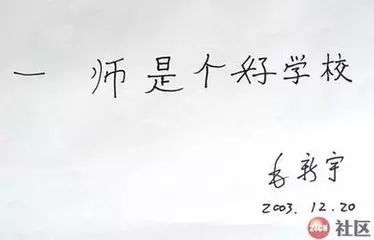 一 师是个好学校
毛新宇
2003. 12. 20
社区